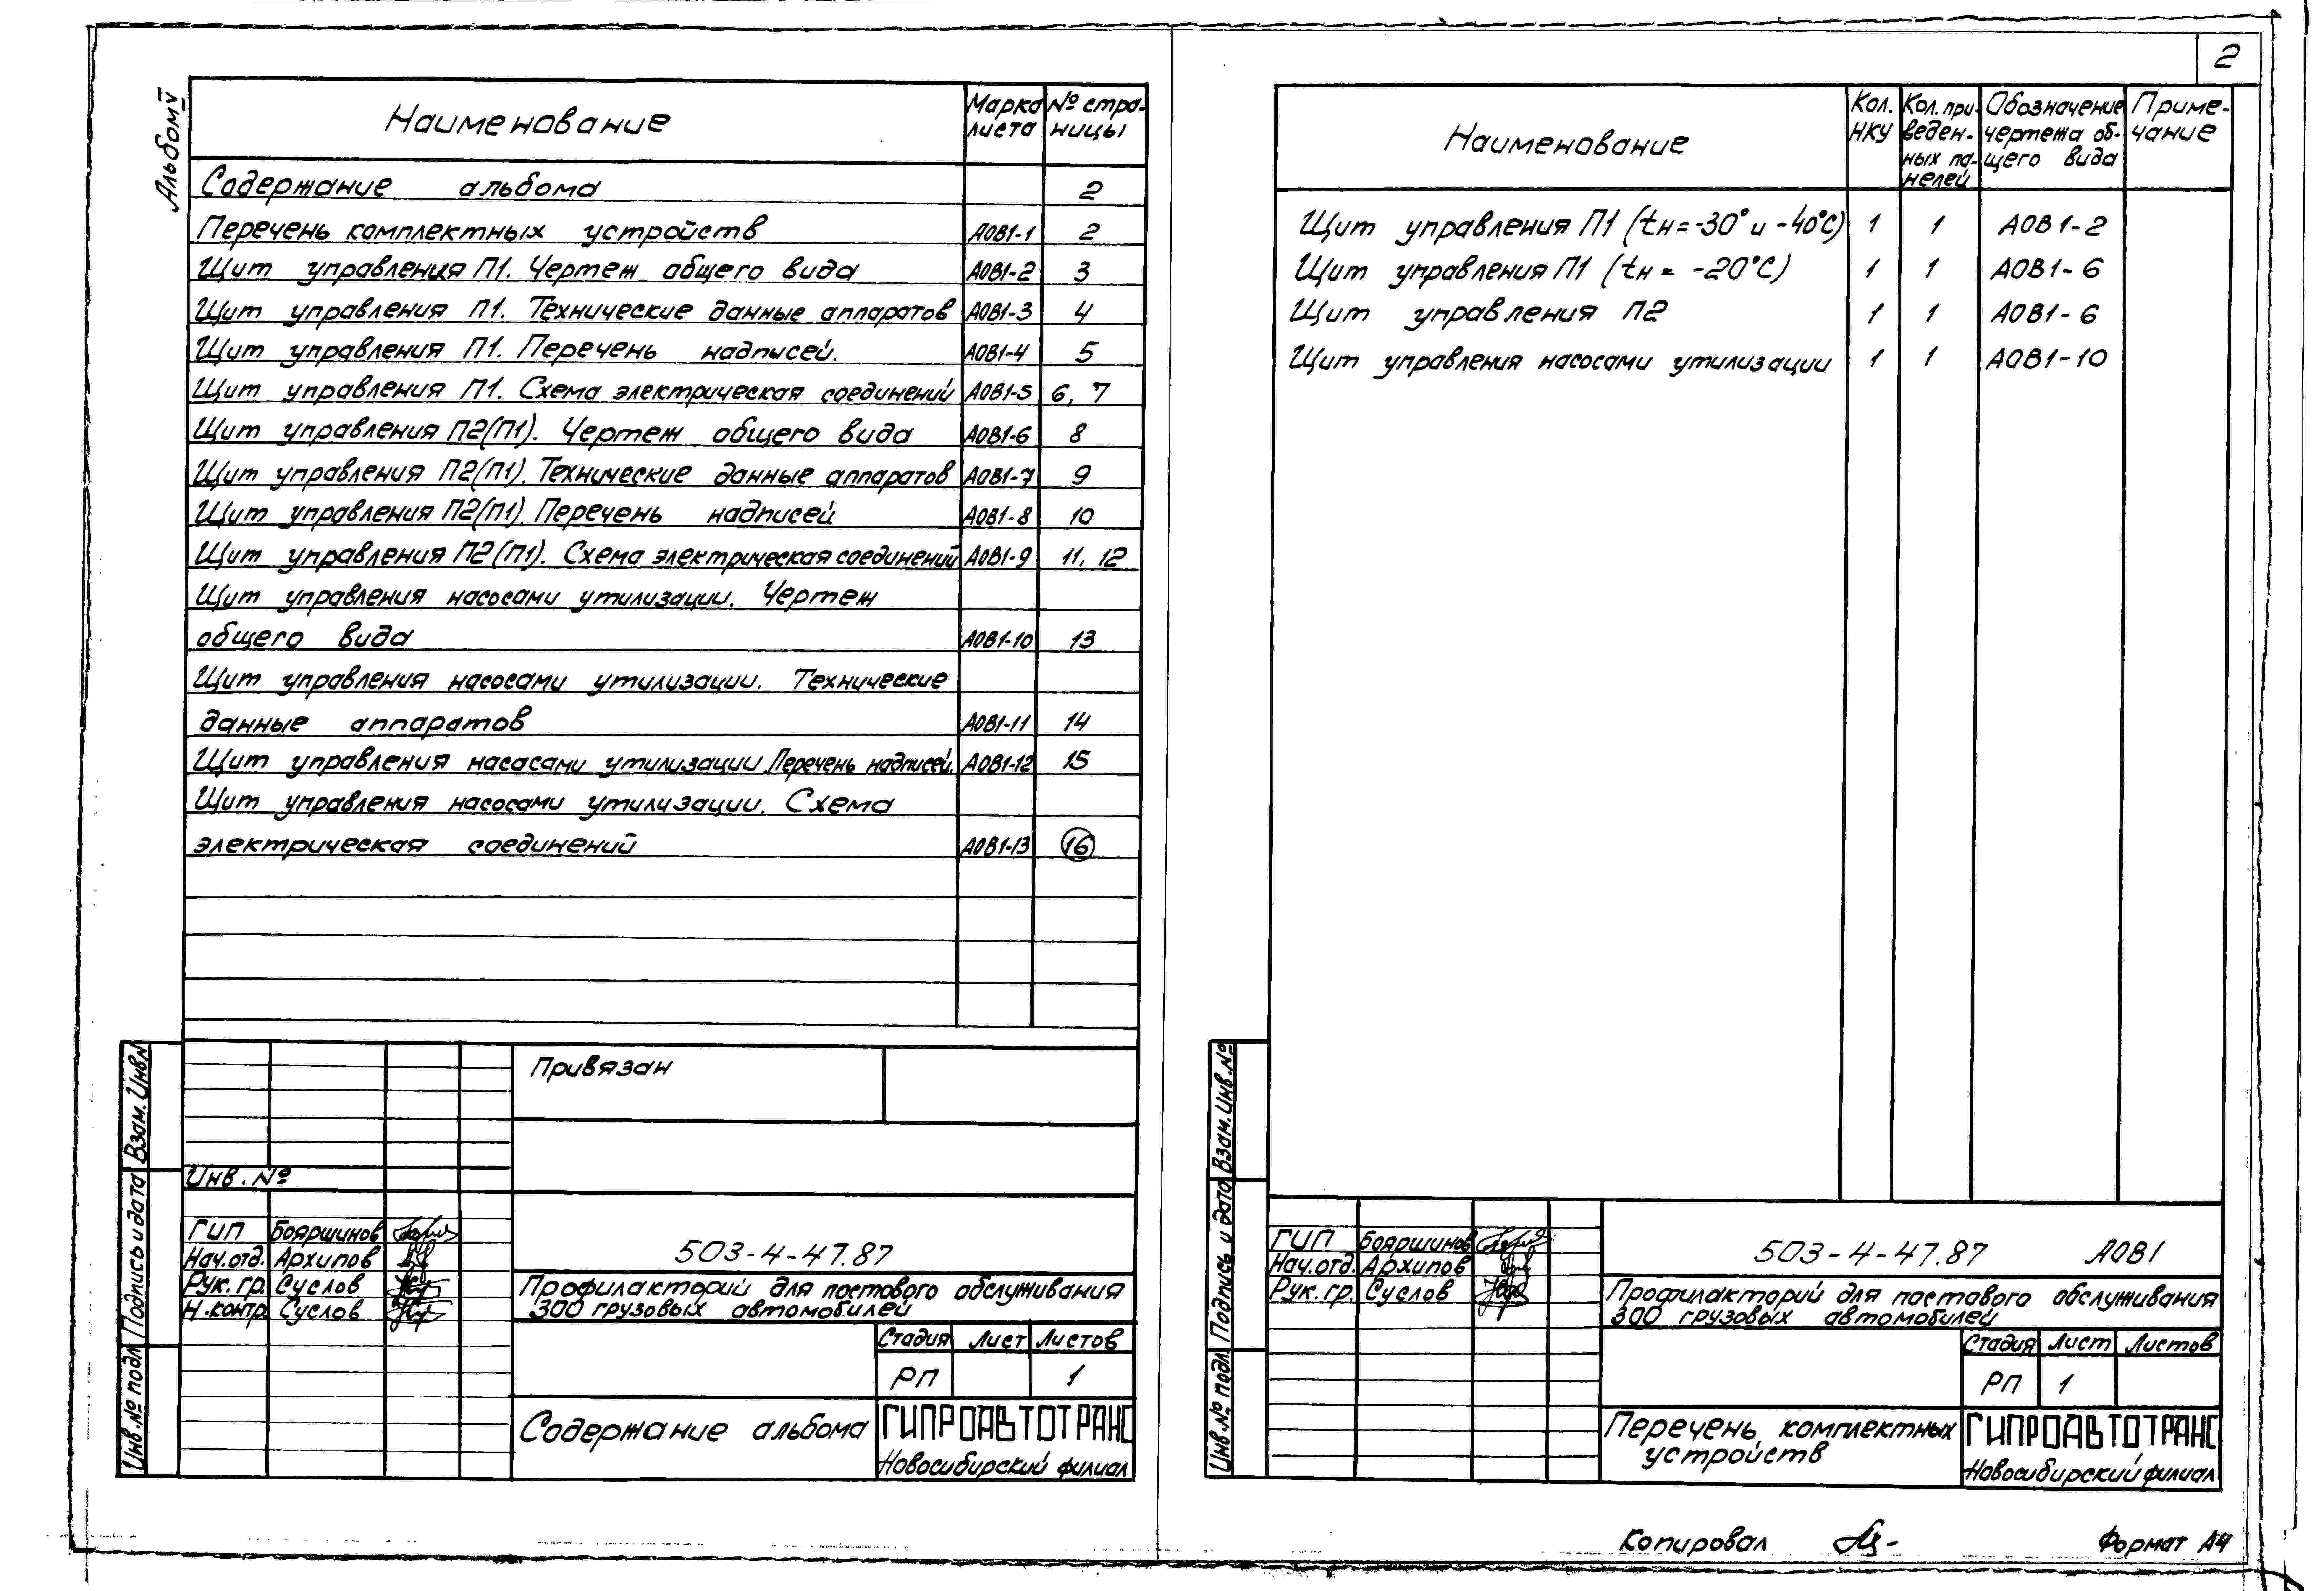 2
Альбом V
Наименование
Марка листа
№ страницы
Содержание альбома 2
Перечень комплектных устройств АОВ1-1 2
Щит управления П1. Чертеж общего вида АОВ1-2 3
Щит управления П1. Технические данные аппаратов АОВ1-3 4
Щит управления П1. Перечень надписей. АОВ1-4 5
Щит управления П1. Схема электрическая соединений АОВ1-5 6, 7
Щит управления П2(П1). Чертеж общего вида АОВ1-6 8
Щит управления П2(П1). Технические данные аппаратов АОВ1-7 9
Щит управления П2(П1). Перечень надписей АОВ1-8 10
Щит управления П2(П1). Схема электрическая соединений АОВ1-9 11, 12
Щит управления насосами утилизации. Чертеж
общего вида АОВ1-10 13
Щит управления насосами утилизации. Технические
данные аппаратов АОВ1-11 14
Щит управления насосами утилизации. Перечень надписей. АОВ1-12 15
Щит управления насосами утилизации. Схема
электрическая соединений АОВ1-13 16
Привязан
Инв. №
ГИП Бояршинов
Нач.отд. Архипов
Рук. гр. Суслов
Н.контр. Суслов
503-4-47.87
Профилакторий для постового обслуживания
300 грузовых автомобилей
Стадия Лист Листов
РП 1
Содержание альбома
ГИПРОАВТОТРАНС
Новосибирский филиал
Взам. Инв №
Подпись и дата
Инв.№ подл
Наименование
Кол. НКУ
Кол. при-
веден-
ных па-
нелей
Обозначение
чертежа об-
щего вида
Приме-
чание
Щит управления П1 (tн=-30° и -40°С) 1 1 АОВ1-2
Щит управления П1 (tн = -20°С) 1 1 АОВ1-6
Щит управления П2 1 1 АОВ1-6
Щит управления насосами утилизации 1 1 АОВ1-10
ГИП Бояршинов
Нач.отд. Архипов
Рук. гр. Суслов
503-4-47.87 АОВ1
Профилакторий для постового обслуживания
300 грузовых автомобилей
Стадия Лист Листов
РП 1
Перечень комплектных
устройств
ГИПРОАВТОТРАНС
Новосибирский филиал
Взам. Инв. №
Подпись и дата
Инв.№ подл.
Копировал
Формат А4